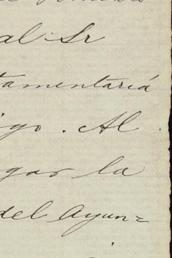 al Sr
tamentaria
igo. Al
gar la
del Ayun=